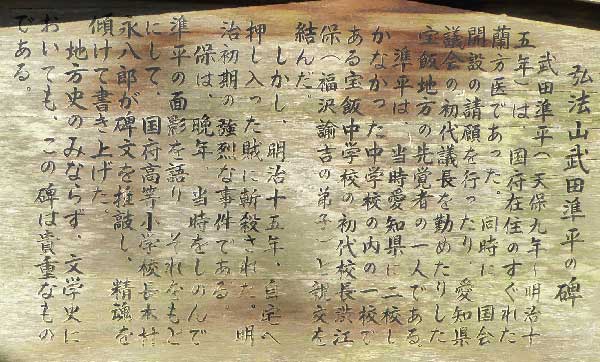 弘法山武田準平の碑
武田準平（天保九年〜明治十
五年）は、国府在住のすぐれた
蘭方医であった。同時に、国会
開設の請願を行ったり、愛知県
議会の初代議長を勤めたりした
宝飯地方の先覚者の一人である。
準平は、当時愛知県に二校し
かなかった中学校の内の一校で
ある宝飯中学校の初代校長渋江
保（福沢諭吉の弟子）と親交を
結んだ。
しかし、明治十五年、自宅へ
押し入った賊に斬殺された。明
治初期の強烈な事件である。
保は、晩年、当時をしのんで
準平の面影を語り、それをもと
にして、国府高等小学校長木村
永八郎が碑文を推敲し、精魂を
傾けて書き上げた。
地方史のみならず、文学史に
おいても、この碑は貴重なもの
である。